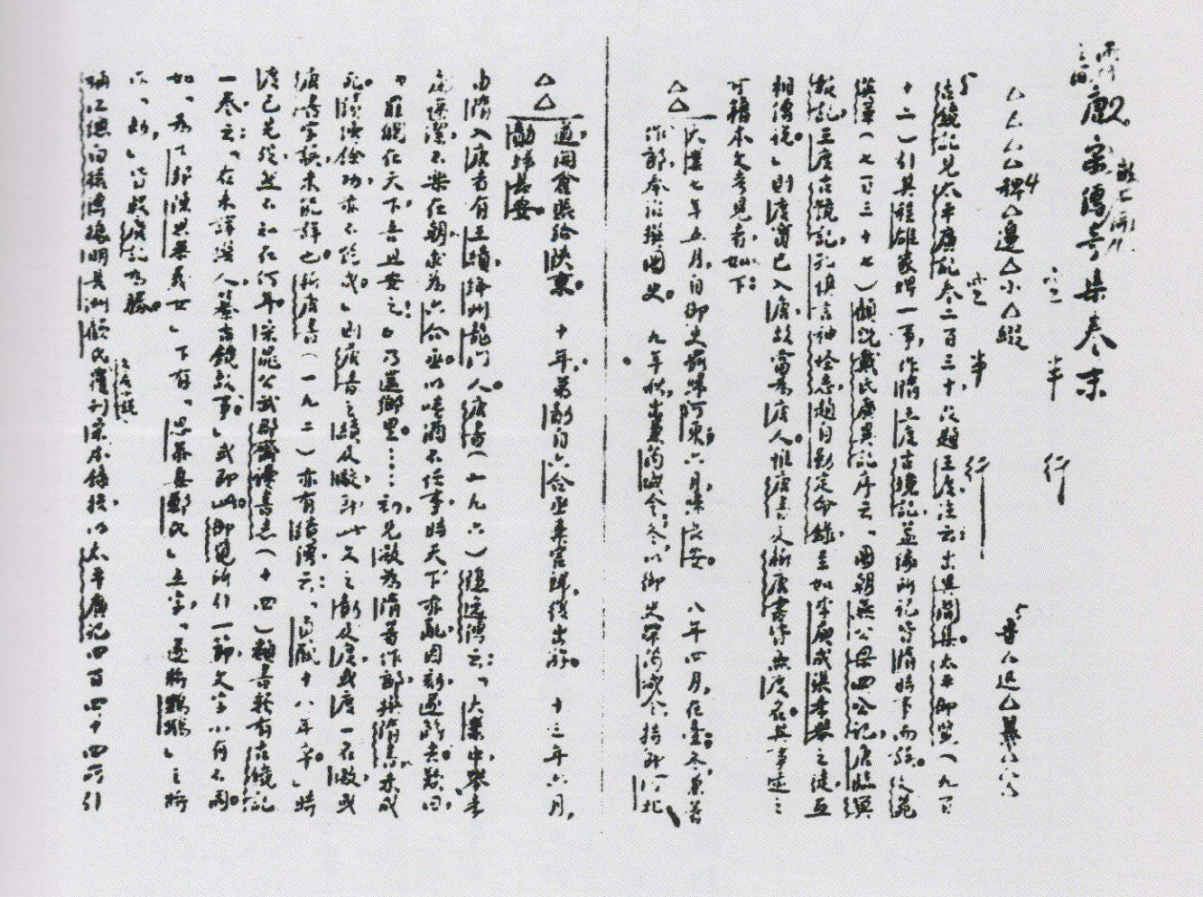 唐宋傳奇集卷末
△△△△稗△邊△小△綴
古鏡記見太平廣記卷二百三十，改題王度，注云：出異聞集。太平御覽（九百
十二）引其程雄家婢一事，作隋王度古鏡記，蓋緣所記皆隋時事而誤。文苑
英華（七百三十七）顧況戴氏廣異記序云「國朝燕公梁四公記，唐臨冥
報記，王度古鏡記，孔慎言神怪志，趙自勤定命錄，至如李庾成張孝舉之徒，互
相傳說。」則度實已入唐，故當為唐人。惟唐書及新唐書皆無度名。其事迹之
可藉本文考見者，如下：
大業七年五月，自御史罷歸河東；六月，歸長安。　八年四月，在臺；冬，兼著
作郎，奉詔撰國史。　九年秋，出兼芮城令；冬，以御史帶芮城令，持節河北
道，開倉賑給陝東。　十年，弟勣自六合丞棄官歸，復出游。　十三年六月，
勣歸長安。
由隋入唐者有王績，絳州龍門人，唐書（一九六）隱逸傳云：「大業中，舉孝
廉潔，不樂在朝，求為六合丞。以嗜酒不任事，時天下亦亂，因劾，遂解去。歎曰：
『羅網在天下，吾且安之！』乃還鄉里。……初，兄凝為隋著作郎，撰隋書，未成，
死。績續餘功，亦不能成。」則唐書之績及凝，即此文之勣及度，或度一名凝，或
唐書字誤，未能詳也。新唐書（一九二）亦有績傳，云：「貞觀十八年卒。」時
度已先歿，然不知在何年。宋晁公武郡齋讀書志（十四）類書類有古鏡記
一卷，云：「右未詳撰人，纂古鏡故事。」或即此。御覽所引一節，文字小有不同。
如「為下邽陳思恭義女」下有「思恭妻鄭氏」五字，「遂將鸚鵡」之「將」
作「劫」，皆較廣記為勝。
補江總白猿傳據明長洲顧氏文房小說覆刊宋本錄，校以太平廣記四百四十四所引